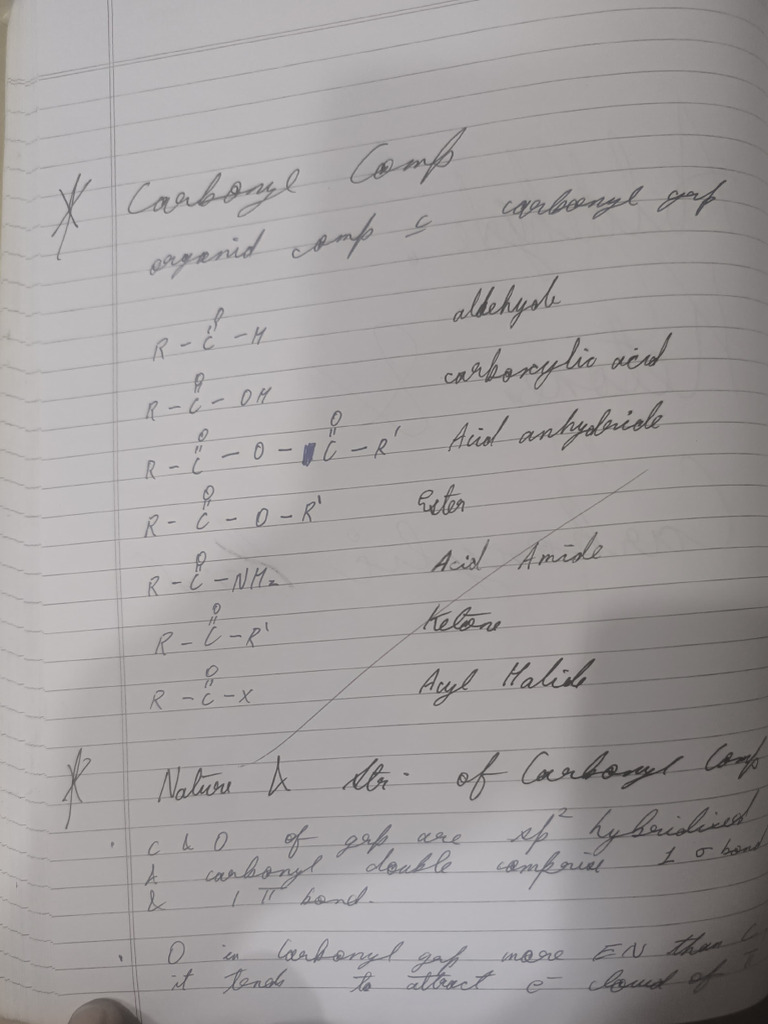 Carbonyl Comp
organid comp c̄ carbonyl grp
R - C(=O) - H aldehyde
R - C(=O) - OH carboxylic acid
R - C(=O) - O - C(=O) - R' Acid anhyderide
R - C(=O) - O - R' Ester
R - C(=O) - NH₂ Acid Amide
R - C(=O) - R' Ketone
R - C(=O) - X Acyl Halide
Nature & Str. of Carbonyl Comp
· C & O of grp are sp² hybridized
& carbonyl double comprise 1 σ bond
& 1 π bond.
· O in Carbonyl grp more EN than C
it tends to attract e⁻ cloud of π